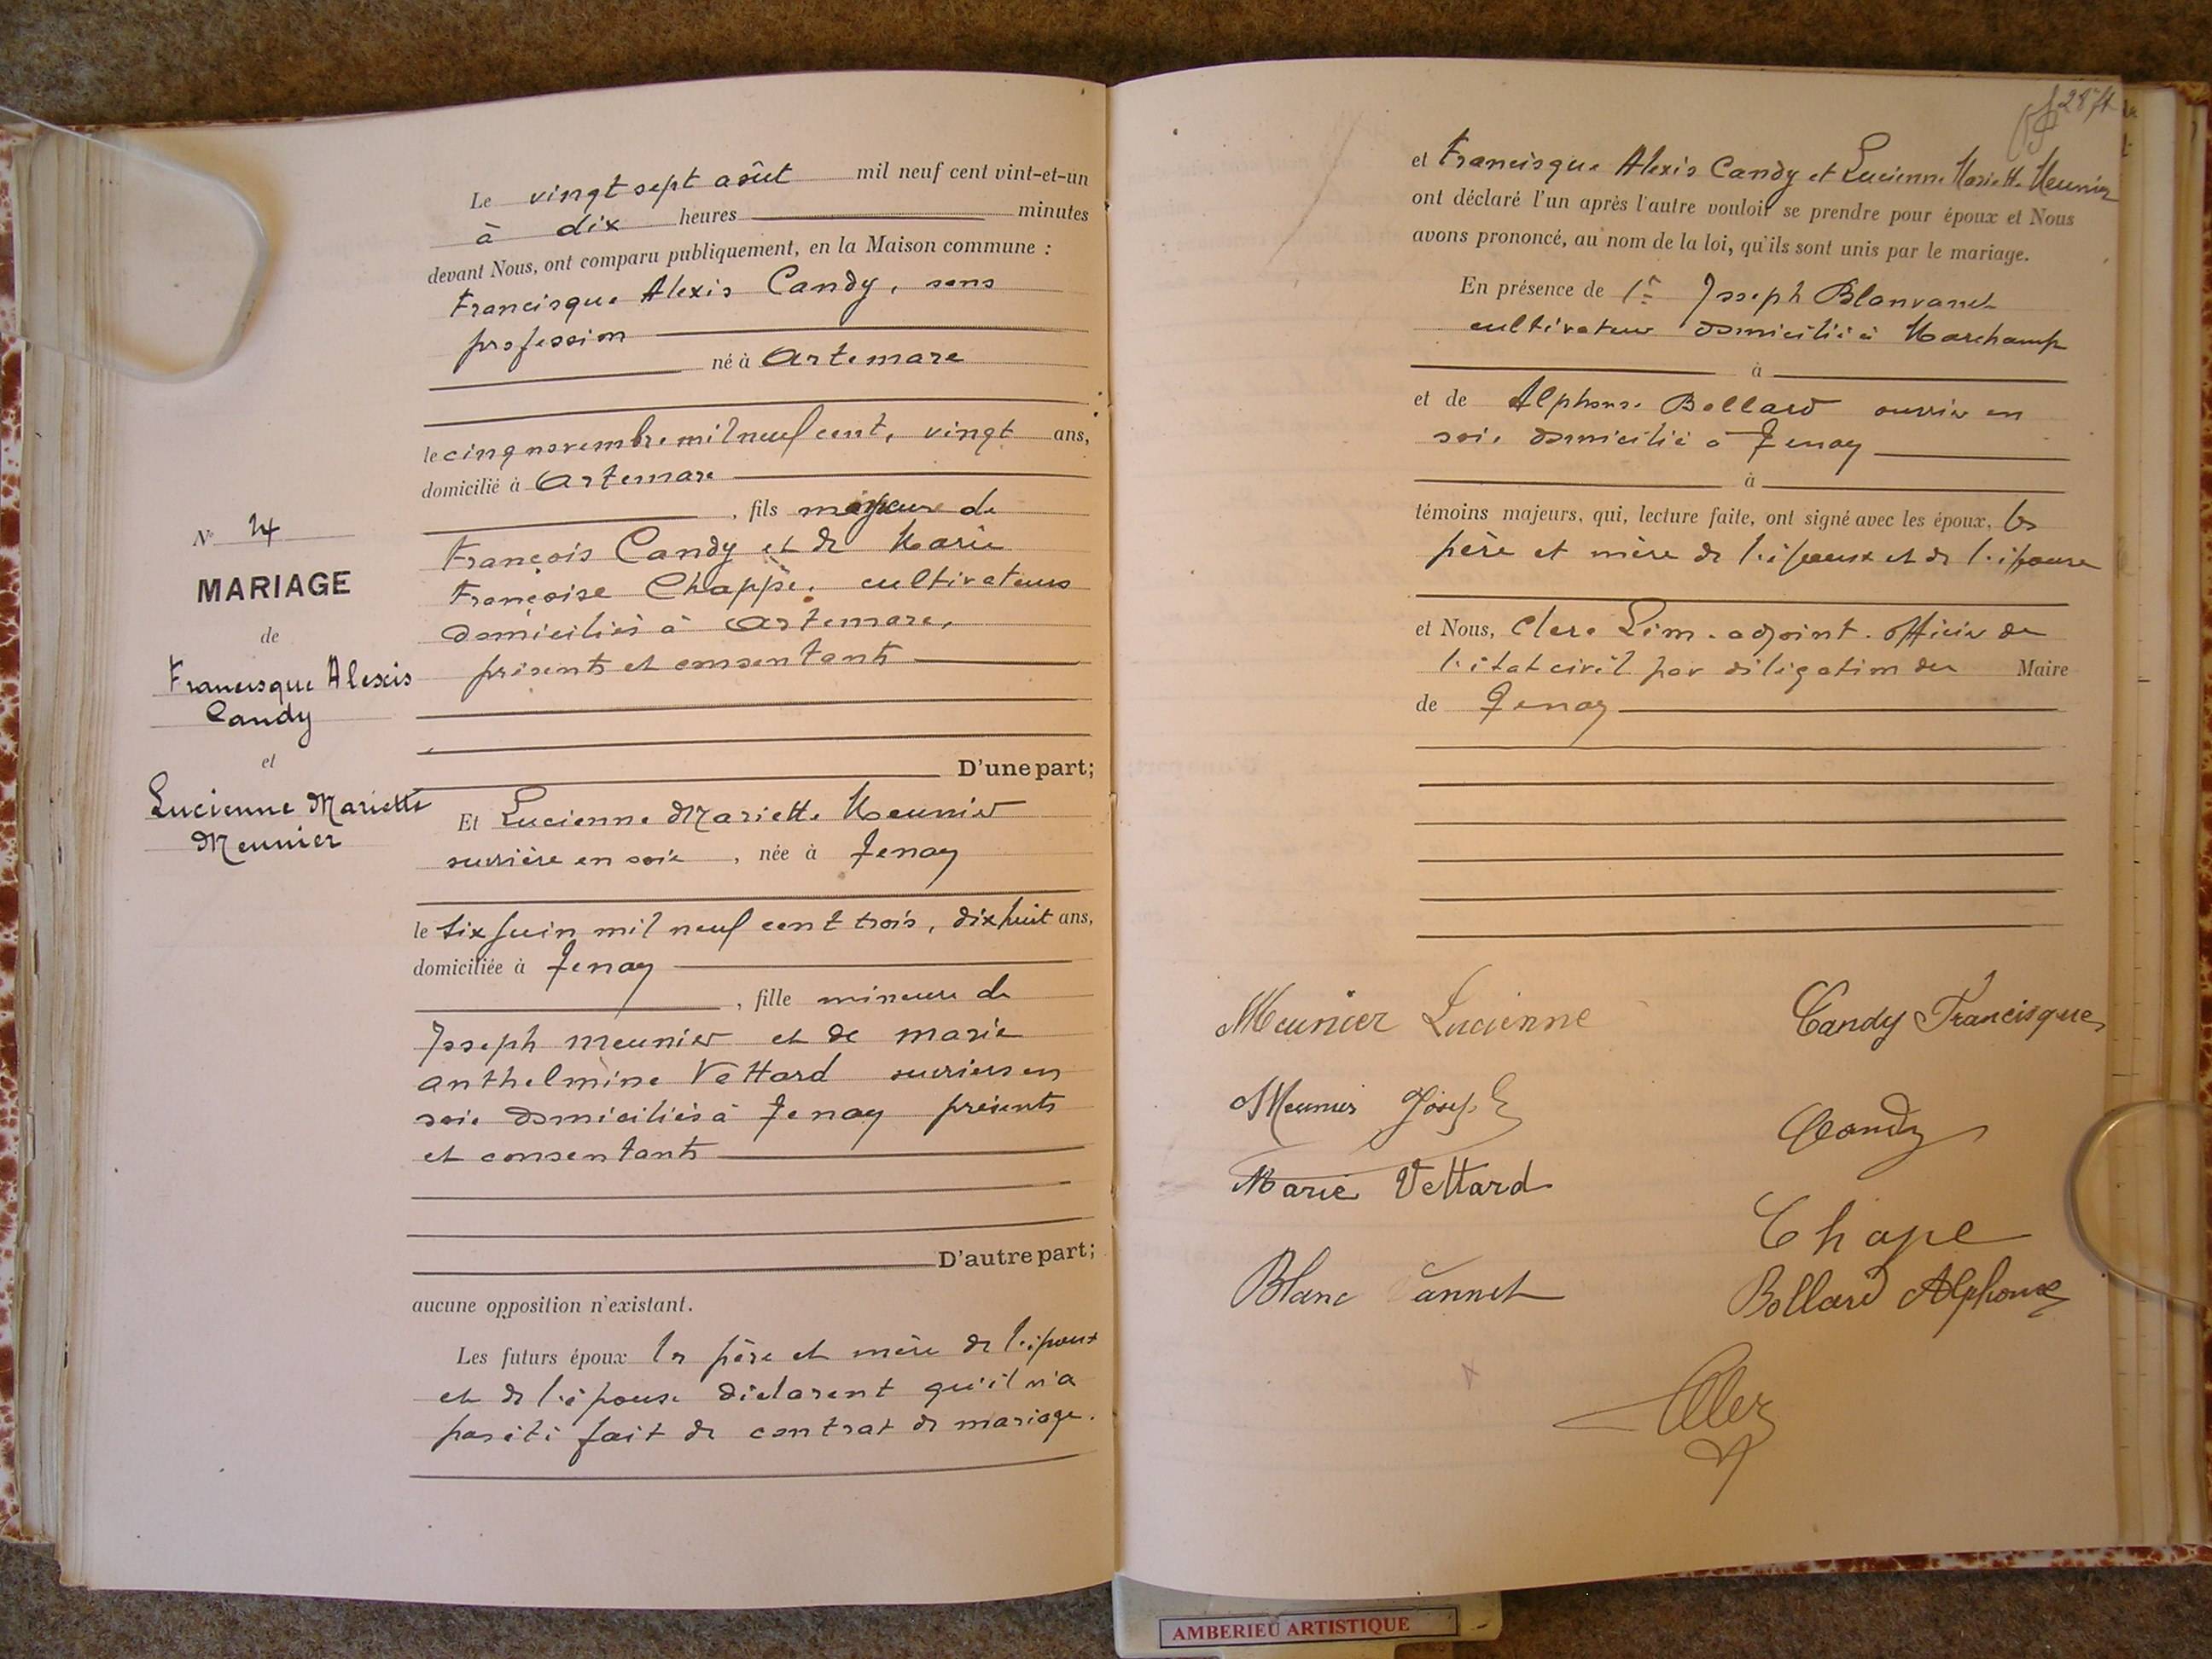 Le vingt sept août mil neuf cent vint-et-un
à dix heures minutes
devant Nous, ont comparu publiquement, en la Maison commune :
Francisque Alexis Candy, sans
profession
né à Artemare
le cinq novembre mil neuf cent, vingt ans,
domicilié à Artemare
, fils majeure de
François Candy et de Marie
Françoise Chappe, cultivateurs
domiciliés à Artemare,
présents et consentants
D'une part;
N°
MARIAGE
de
Francisque Alexis
Candy
et
Lucienne Mariette
Meunier
Et Lucienne Mariette Meunier
ouvrière en soie, née à Tenay
le six juin mil neuf cent trois, dix huit ans,
domiciliée à Tenay
, fille mineure de
Joseph Meunier et de Marie
Anthelmine Vettard ouvriers en
soie domiciliés à Tenay présents
et consentants
D'autre part;
aucune opposition n'existant.
Les futurs époux les père et mère de l'époux
et de l'épouse déclarent qu'il n'a
pas été fait de contrat de mariage.
et Francisque Alexis Candy et Lucienne Mariette Meunier
ont déclaré l'un après l'autre vouloir se prendre pour époux et Nous
avons prononcé, au nom de la loi, qu'ils sont unis par le mariage.
En présence de Joseph Blanvanet
cultivateur domicilié à Marchamp
à
et de Alphonse Bollard ouvrier en
soie domicilié à Tenay
à
témoins majeurs, qui, lecture faite, ont signé avec les époux, les
père et mère de l'époux et de l'épouse
et Nous, Clerc adjoint. officier de
l'état civil par délégation du Maire
de Tenay
Meunier Lucienne
Candy Francisque
Meunier Joseph
Candy
Marie Vettard
Chape
Blanc Vannet
Bollard Alphonse
AMBERIEU ARTISTIQUE